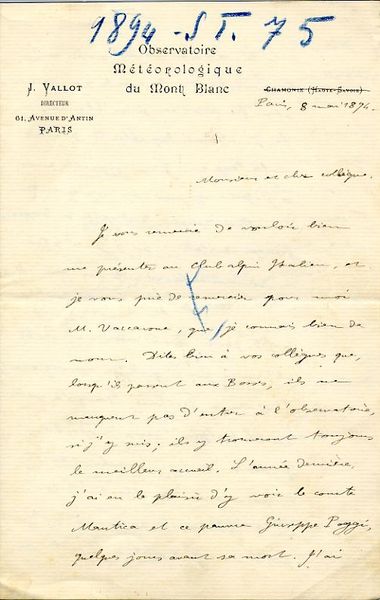 1894 - ST. 75
Observatoire
Météorologique
du Mont Blanc
J. VALLOT
DIRECTEUR
61, AVENUE D'ANTIN
PARIS
CHAMONIX (HAUTE-SAVOIE)
Paris, 8 mai 1894.
Monsieur et cher collègue.
Je vous remercie de vouloir bien
me présenter au Club alpin Italien, et
je vous prie de remercier pour moi
M. Vaccarone, que je connais bien de
nom. Dites bien à vos collègues que,
lorsqu'ils passent aux Bosses, ils ne
manquent pas d'entrer à l'observatoire,
si j'y suis; ils y trouveront toujours
le meilleur accueil. L'année dernière,
j'ai eu le plaisir d'y voir le comte
Mautica et ce pauvre Giuseppe Poggi,
quelques jours avant sa mort. J'ai